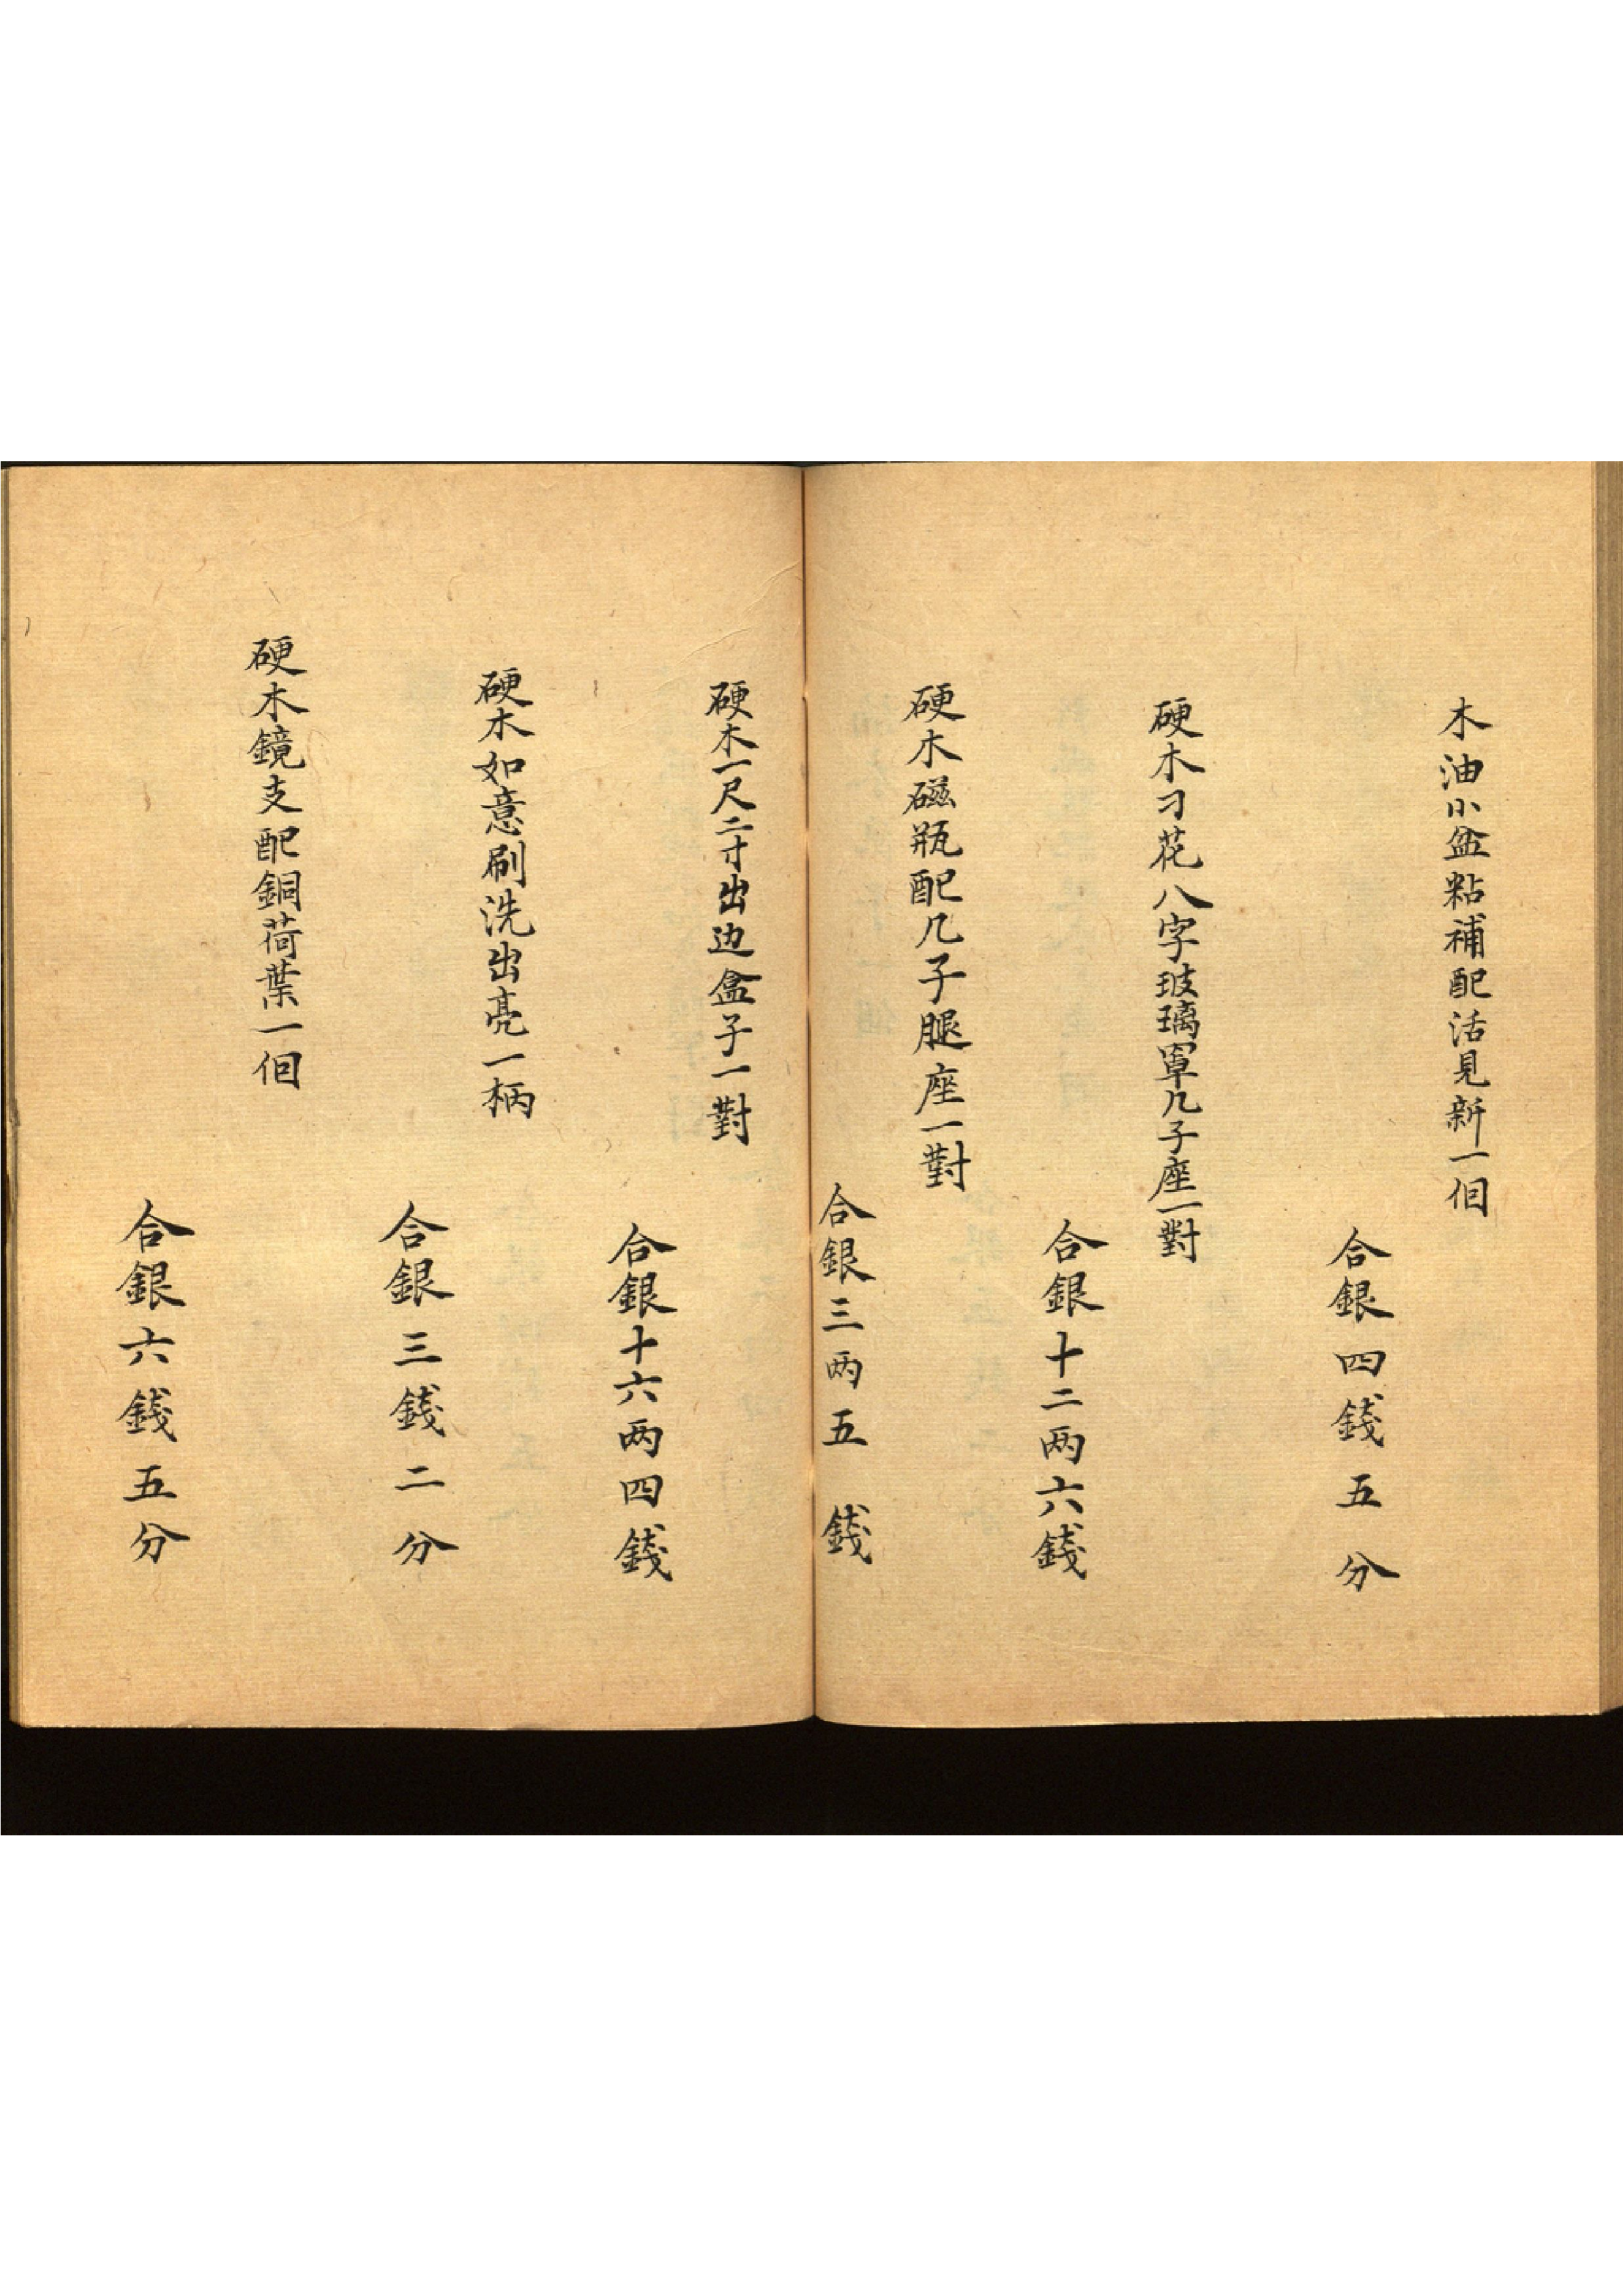 木油小盆粘補配活見新一佪
合銀四錢五分
硬木刁花八字玻璃罩几子座一對
合銀十二两六錢
硬木磁瓶配几子腿座一對
合銀三两五錢
硬木一尺二寸出边盒子一對
合銀十六两四錢
硬木如意刷洗出亮一柄
合銀三錢二分
硬木鏡支配銅荷葉一佪
合銀六錢五分